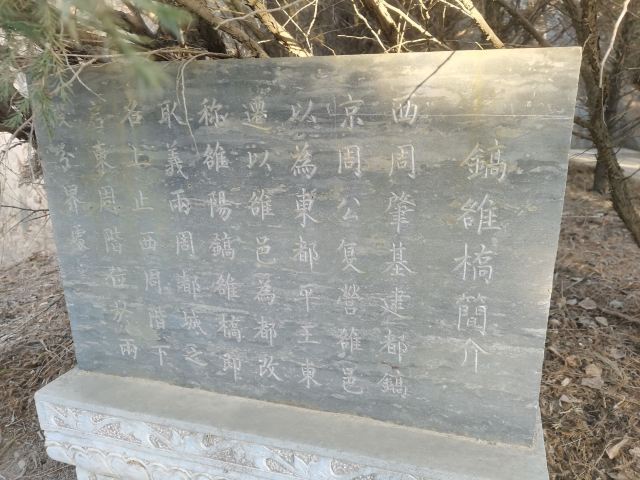 鎬雒橋簡介
西周肇基建都鎬
京周公复營雒邑
以為東都平王東
遷以雒邑為都改
称雒陽鎬雒橋即
取義兩周都城之
名上止西周階下
東周階兩
分界